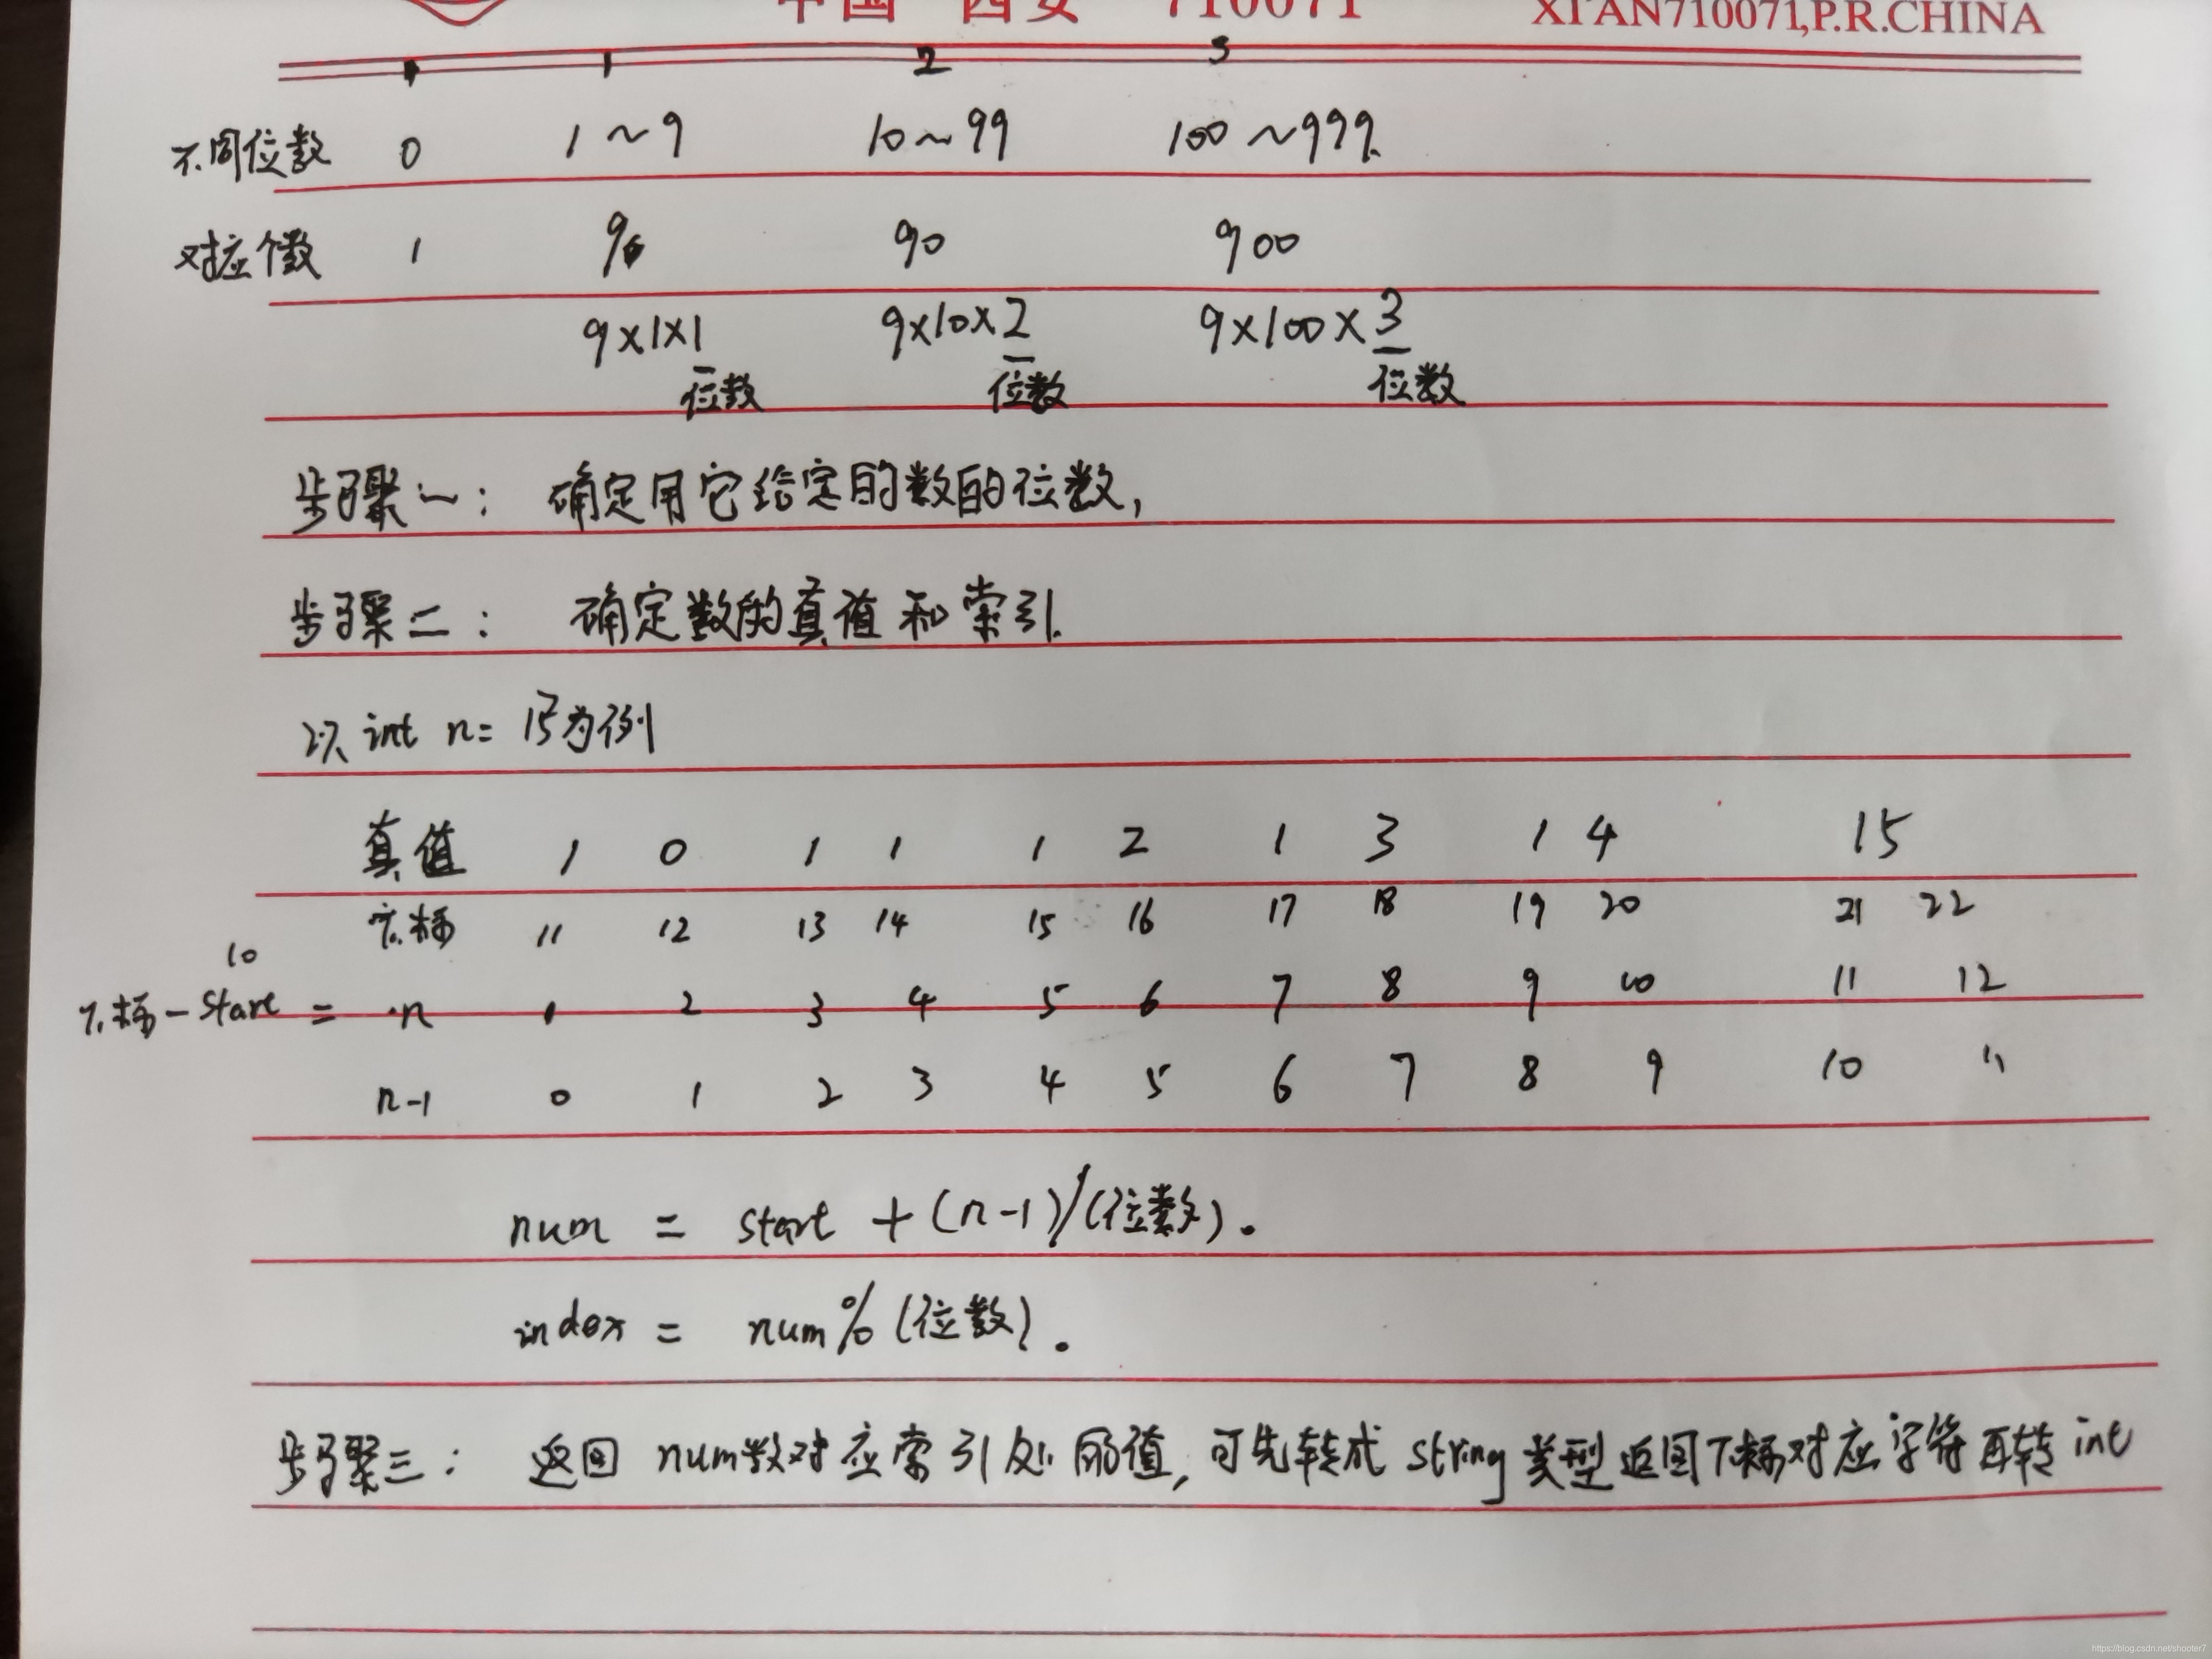 中国 西安 710071 XI'AN710071,P.R.CHINA
1 2 3
不同位数 0 1~9 10~99 100~999.
对应个数 1 9 90 900
9×1×1 9×10×2 9×100×3
位数 位数 位数
步骤一: 确定用它给定的数的位数,
步骤二: 确定数的真值和索引.
以 int n= 15为例
真值 1 0 1 1 1 2 1 3 1 4 15
下标 11 12 13 14 15 16 17 18 19 20 21 22
10
下标-start = n 1 2 3 4 5 6 7 8 9 10 11 12
n-1 0 1 2 3 4 5 6 7 8 9 10 11
num = start + (n-1)/(位数).
index = num%(位数).
步骤三: 返回 num数对应索引处的值,可先转成 string类型返回下标对应字符再转 int
https://blog.csdn.net/shooter7